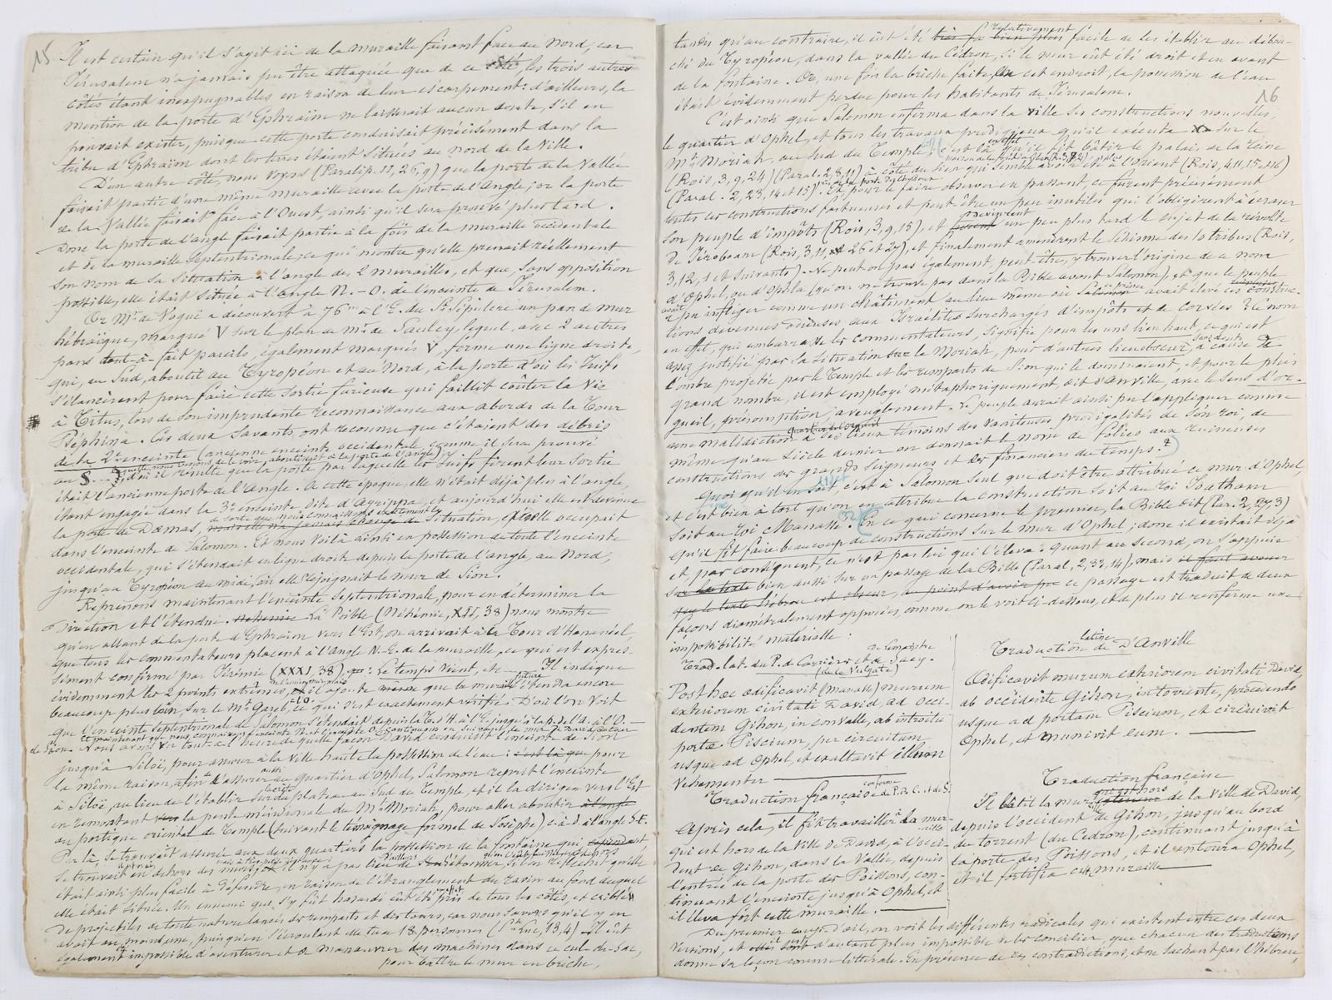 15
Il est certain qu'il s'agit ici de la muraille faisant face au Nord, car
Jérusalem n'a jamais pu être attaquée que de ce côté les trois autres
côtés étant inexpugnables en raison de leur escarpement: d'ailleurs, la
mention de la porte d'Ephraïm ne laisserait aucun doute, s'il en
pouvait exister, puisque cette porte conduisait précisément dans la
tribu d'Ephraïm dont les terres étaient situées au nord de la Ville.
D'un autre côté, nous voyons (Paralip. 11, 26, 9) que la porte de la Vallée
faisait partie d'une même muraille avec la porte de l'Angle; or la porte
de la Vallée faisait face à l'Ouest, ainsi qu'il sera prouvé plus tard.
Donc la porte de l'angle faisait partie à la fois de la muraille occidentale
et de la muraille septentrionale, ce qui montre qu'elle prenait réellement
son nom de sa situation à l'angle des 2 murailles, et que, sans opposition
possible, elle était située à l'angle N.-O. de l'enceinte de Jérusalem.
Or Mr de Vogüé a découvert à 76m à l'E. du St Sépulcre un pan de mur
hébraïque, marqué V sur le plan de Mr de Saulcy, lequel, avec 2 autres
pans tout à fait pareils, également marqués V, forme une ligne droite,
qui, au Sud, aboutit au Tyropéon et au Nord, à la porte d'où les Juifs
s'élancèrent pour faire cette sortie furieuse qui faillit coûter la vie
à Titus, lors de son imprudente reconnaissance aux abords de la Tour
Pséphina. Ces deux savants ont reconnu que c'étaient des débris
de la 2e enceinte (ancienne enceinte occidentale, comme il sera prouvé
au S. ) d'où il résulte que la porte par laquelle les Juifs firent leur sortie
était l'ancienne porte de l'Angle. À cette époque, elle n'était déjà plus à l'angle,
étant engagée dans la 3e enceinte dite d'Agrippa, et aujourd'hui elle est devenue
la porte de Damas, situation, qu'elle occupait
dans l'enceinte de Salomon. Et nous voilà ainsi en possession de toute l'enceinte
occidentale, qui s'étendait en ligne droite depuis la porte de l'angle, au Nord,
jusqu'au Tyropéon au midi, où elle rejoignait le mur de Sion.
Reprenons maintenant l'enceinte septentrionale, pour en déterminer la
direction et l'étendue. La Bible (Néhémie, XII, 38) nous montre
qu'en allant de la porte d'Ephraïm vers l'Est, on arrivait à la Tour d'Hananéel,
que tous les commentateurs placent à l'Angle N.-E. de la muraille, ce qui est expres-
sément confirmé par Jérémie (XXXI, 38) qui: Le temps vient, etc. Il indique
évidemment les 2 points extrêmes, il ajoute que la muraille s'étendra encore
beaucoup plus loin sur le Mt Gareb, ce qui s'est exactement vérifié: D'où l'on voit
que l'enceinte septentrionale de Salomon s'étendait depuis la T. d'H. à l'E. jusqu'à la p. de l'A. à l'O. —
jusqu'à Siloé, pour amener à la Ville haute la possession de l'eau: pour
la même raison, afin d'assurer au quartier d'Ophel, Salomon reprit l'enceinte
à Siloé, au lieu de l'établir sur du plateau au Sud du Temple, et il la dirigea vers l'Est
en remontant la pente méridionale du Mt Moriah, pour aller aboutir
au portique oriental du Temple (suivant le témoignage formel de Josèphe) c.à.d. à l'angle S.E.
Par là se trouvait assurée aux deux quartiers la possession de la fontaine qui
était ainsi plus facile à défendre, en raison de l'étranglement du ravin au fond duquel
elle était située. Un ennemi qui s'y fût hasardé eût été pris de tous les côtés, et criblé
de projectiles de toute nature lancés des remparts et des tours, car nous savons qu'il y en
avait au moins une, puisqu'en s'écroulant elle tua 18 personnes (St Luc, 13, 4). Il eût
également impossible d'aventurer et de manœuvrer des machines dans ce cul de sac,
pour battre le mur en brèche,
16
tandis qu'au contraire, il eût été relativement facile de les établir au débou-
ché du Tyropéon, dans la vallée du Cédron, si le mur eût été droit et en avant
de la fontaine. Or, une fois la brèche faite en cet endroit, la possession de l'eau
était évidemment perdue pour les habitants de Jérusalem.
C'est ainsi que Salomon enferma dans la ville ses constructions nouvelles,
le quartier d'Ophel, et tous les travaux prodigieux qu'il exécuta sur le
Mt Moriah, au Sud du Temple. C'est là qu'il fit bâtir le palais de la reine
(Rois, 3, 9, 24) (Paral. 2, 8, 11) à côté du sien à l'Orient
(Paral. 2, 23, 14 et 15). Et pour le faire observer en passant, ce furent précisément
toutes ces constructions fastueuses et peut être un peu inutiles qui l'obligèrent à écraser
son peuple d'impôts (Rois, 3, 9, 15), et devinrent un peu plus tard le sujet de la révolte
de Jéroboam (Rois, 3, 11, 26 et 27), et finalement amenèrent le schisme des 10 tribus (Rois,
3, 12, 1 et suivants). Ne peut-on pas également, peut être, y trouver l'origine de ce nom
d'Ophel, ou d'Ophla (qu'on ne trouve pas dans la Bible avant Salomon), et que le peuple
lui infliger comme un châtiment au lieu même où Salomon avait élevé ces construc-
tions devenues odieuses aux Israélites surchargés d'impôts et de corvées. Ce nom
en effet, qui embarrasse les commentateurs, signifie pour les uns lieu haut, ce qui est
assez justifié par la situation sur le Moriah, pour d'autres lieu obscur, à cause de
l'ombre projetée par le Temple et les remparts de Sion qui le dominaient, et pour le plus
grand nombre, il est employé métaphoriquement dit d'Anville, avec le sens d'or-
gueil, présomption, aveuglement. Le peuple aurait ainsi pu l'appliquer comme
une malédiction à ces lieux témoins des vaniteuses prodigalités de son roi, de
même qu'au siècle dernier on donnait le nom de Folies aux ruineuses
constructions des grands seigneurs et des financiers du temps.
Quoi qu'il en soit, c'est à Salomon seul que doit être attribué ce mur d'Ophel,
et c'est bien à tort qu'on en attribue la construction soit au roi Joatham
soit au roi Manassé. En ce qui concerne le premier, la Bible dit (Par. 2, 27, 3)
qu'il fit faire beaucoup de constructions sur le mur d'Ophel; donc il existait déjà
et par conséquent, ce n'est pas lui qui l'éleva. Quant au second, on s'appuie
bien aussi sur un passage de la Bible (Paral. 2, 33, 14), mais
ce passage est traduit de deux
façons diamétralement opposées, comme on le voit ci-dessous, et de plus il renferme une
impossibilité matérielle:
Trad. lat. du P. de Carrières et de Sacy.
(de la Vulgate)
Post hæc ædificavit (Manass.) murum
exteriorem civitatis David, ad occi-
dentem Gihon, in convalle, ab introitu
portæ Piscium, per circuitum
usque ad Ophel, et exaltavit illum
vehementer
Traduction française conforme de P. de C. et de S.
Après cela, il fit travailler à la mur-
aille
qui est hors de la ville de David, à l'occi-
dent de Gihon, dans la Vallée, depuis
l'entrée de la porte des Poissons, con-
tinuant l'enceinte jusqu'à Ophel, et
il éleva fort cette muraille.
Traduction latine de D'Anville
Ædificavit murum exteriorem civitatis David,
ab occidente Gihon, in torrente, procedendo
usque ad portam Piscium, et circuivit
Ophel, et munivit eum.
Traduction française
Il bâtit la mur. qui est hors de la Ville de David,
depuis l'occident de Gihon, jusqu'au bord
du torrent (du Cédron), continuant jusqu'à
la porte des Poissons, et il entoura Ophel,
et il fortifia cette muraille
Du premier coup d'œil, on voit les différences radicales qui existent entre ces deux
versions, et d'autant plus impossibles à les concilier, que chacun des traducteurs
donne sa leçon comme littérale. En présence de ces contradictions, et ne sachant pas l'hébreu,